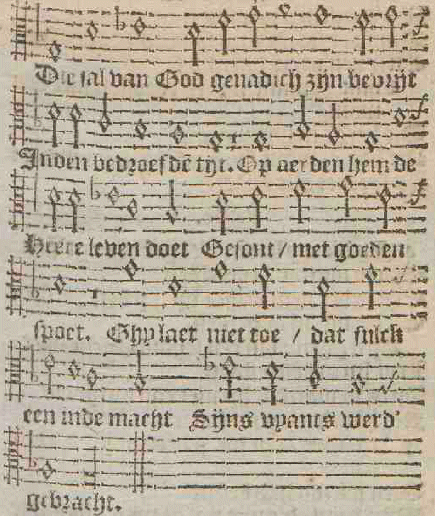 Die sal van God genadich zijn bevrijt
Inden bedroefdē tijt. Op aerden hem de
Heere leven doet Gesont / met goeden
spoet. Ghy laet niet toe / dat sulck
een inde macht Sijns vyants werd'
gebracht.